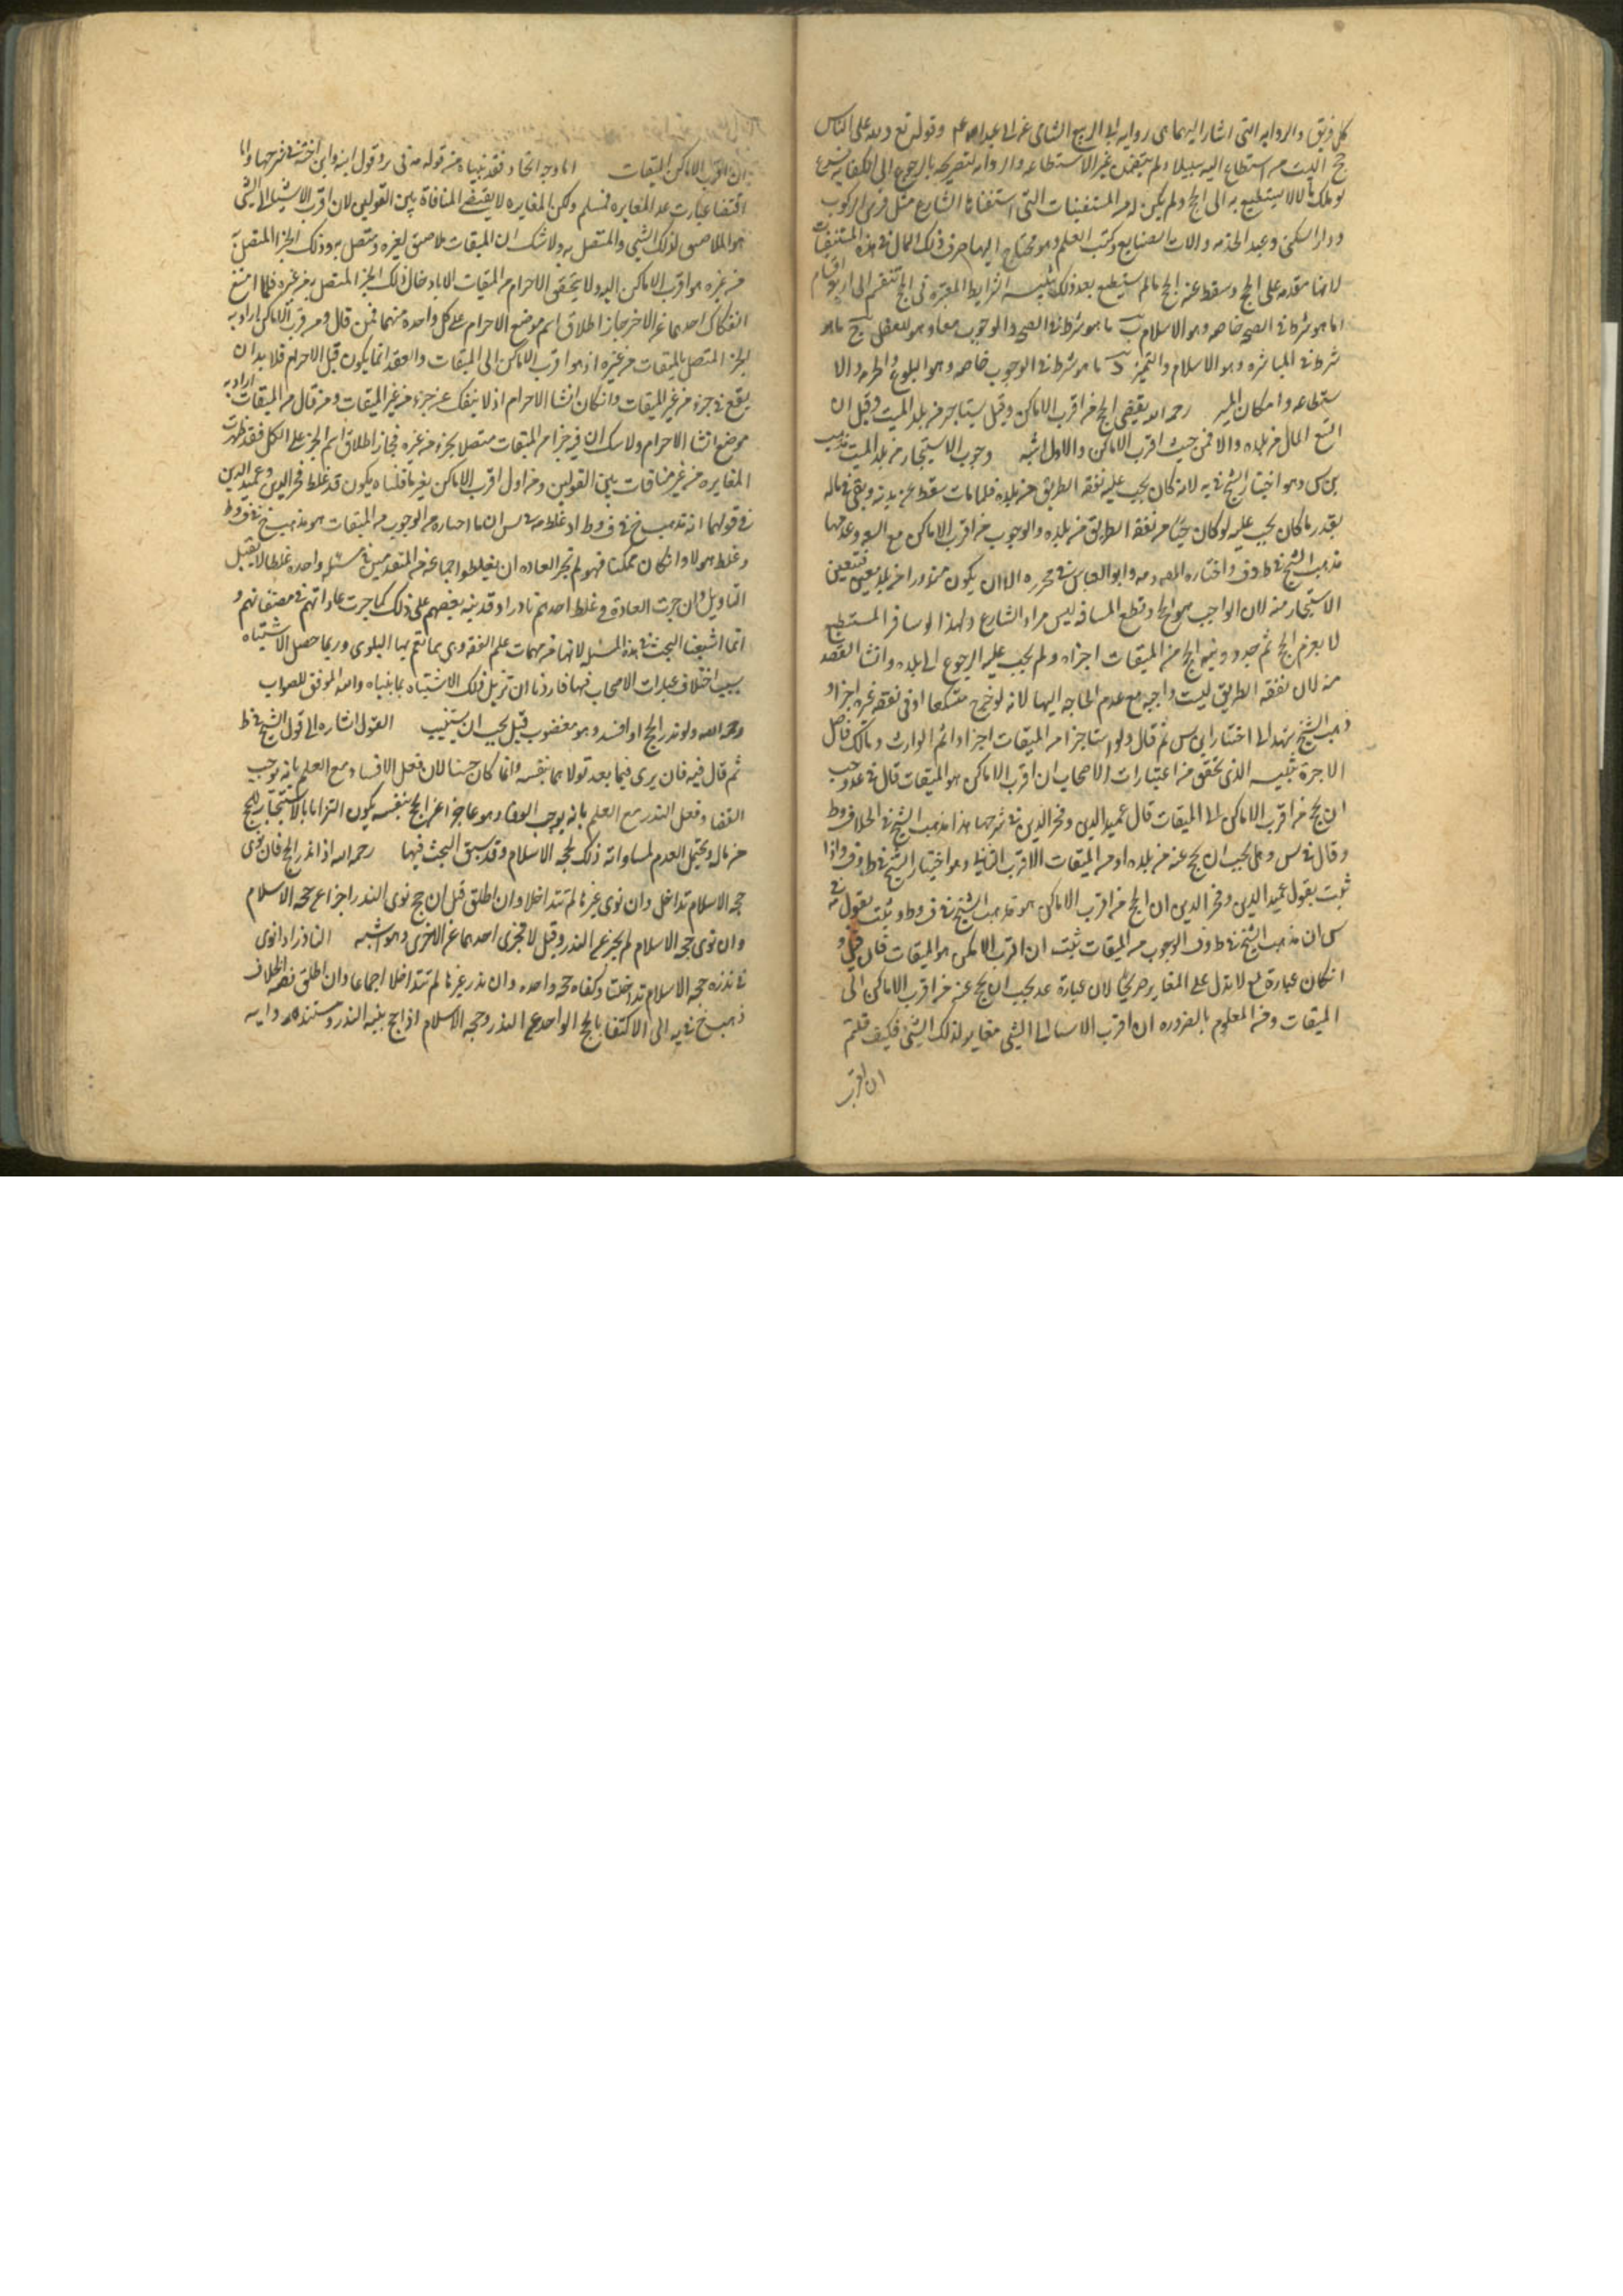 كل فريق والروايه التى اشار اليها هى روايه ابى الربيع الشامى عن ابى عبد الله عم وقوله تع ولله على الناس
حج البيت من استطاع اليه سبيلا ولم يتضمن غير الاستطاعه والروايه لتصريحه بالرجوع الى الكفايه
لو ملك مالا لا يستطيع به الى الحج ولم يكن له من المستثنيات التى استثناها الشارع مثل فرس الركوب
ودار السكنى وعبد الخدمه والات الصنايع وكتب العلم وهو محتاج اليها صرف ذلك المال فى هذه المستثنيات
لانها مقدمه على الحج وسقط عنه الحج ما لم يستطيع بعد ذلك تنبيه الشرايط المعتبره فى الحج تنقسم الى اربع اقسام
ا ما هو شرط فى الصحه خاصه وهو الاسلام ب ما هو شرط فى الصحه والوجوب معا وهو العقل ج ما هو
شرط فى المباشره وهو الاسلام والتميز د ما هو شرط فى الوجوب خاصه وهو البلوغ والحريه والا
ستطاعه وامكان المسير رحمه الله يقضى الحج من اقرب الاماكن وقيل يستاجر من بلد الميت وقيل ان
اتسع المال من بلده والا فمن حيث اقرب الاماكن والاول اشبه وجوب الاستيجار من بلد الميت مذهب
بن س وهو اختيار الشيخ فى يه لانه كان يجب عليه نفقه الطريق من بلده فلما مات سقط عن بدنه وبقى فى ماله
بقدر ما كان يجب عليه لو كان حيا من نفقه الطريق من بلده والوجوب من اقرب الاماكن مع السعه وعدمها
مذهب الشيخ فى ط وف واختاره المصه وابو العباس فى محرره الا ان يكون منذورا من بلد معين فتعين
الاستيجار منه لان الواجب هو الحج وقطع المسافه ليس مراد الشارع ولهذا لو سافر المستطيع
لا بعزم الحج ثم جدد نيه الحج من الميقات اجزاه ولم يجب عليه الرجوع الى بلده وانشا القصد
منه لان نفقه الطريق ليست واجبه مع عدم الحاجه اليها لانه لو خرج متسكعا او فى نفقه غيره اجزا و
ذهب الشهيد الى اختيار ابن س ثم قال ولو استاجر من الميقات اجزا واثم الوارث وتملك فاضل
الاجرة تنبيه الذى تحقق من اعتبارات الاصحاب ان اقرب الاماكن هو الميقات قال فى عد وجب
ان يحج من اقرب الاماكن الى الميقات قال عميد الدين وفخر الدين فى شرحها هذا مذهب الشيخ فى الخلاف وط
وقال فى س وهل يجب ان يحج عنه من بلده او من الميقات الاقرب الثانى وهو اختيار الشيخ فى ط وف واذا
ثبت بقول عميد الدين وفخر الدين ان الحج من اقرب الاماكن هو مذهب الشيخ فى ف وط وثبت بقوله فى
س ان مذهب الشيخ فى ط وف الوجوب من الميقات ثبت ان اقرب الاماكن هو الميقات فان قيل و
ان كان عبارة لا تدل على المغايره صريحا لان عبارة عد يجب ان يحج عنه من اقرب الاماكن الى
الميقات ومن المعلوم بالضروره ان اقرب الاشيا الى الشى مغاير لذلك الشى فكيف قلتم
ان اقرب
ان اقرب الاماكن الميقات اما وجه الاتحاد فقد بيناه من قوله فى رد قول ابنه وابن اخته فى شرحها واما
اقتضا عبارت عد المغايره فمسلم ولكن المغايره لا يقتضى المنافاة بين القولين لان اقرب الاشيا الى الشى
هو الملاصق لذلك الشى والمتصل به ولا شك ان الميقات ملاصق لغيره ومتصل به وذلك الجزء المتصل به
من غيره هو اقرب الاماكن اليه ولا يتحقق الاحرام من الميقات الا بادخال ذلك الجزء المتصل به من غيره فلما امتنع
انفكاك احدهما عن الاخر جاز اطلاق اسم موضع الاحرام على كل واحدة منهما فمن قال من اقرب الاماكن اراد به
الجزء المتصل بالميقات من غيره اذ هو اقرب الاماكن الى الميقات والعقد انما يكون قبل الاحرام فلا بد ان
يقع فى جزء من غير الميقات وان كان انشا الاحرام اذ لا ينفك عن جزء من غير الميقات ومن قال من الميقات اراد به
موضع انشا الاحرام ولا شك ان فيه جزا من الميقات متصلا بجزء من غيره فجاز اطلاق اسم الجزء على الكل فقد ظهرت
المغايره من غير منافات بين القولين ومن اول اقرب الاماكن بغير ما قلناه يكون قد غلط فخر الدين وعميد الدين
فى قولهما انه مذهب الشيخ فى ف وط او غلط فى س ان ما اختاره من الوجوب من الميقات هو مذهب الشيخ فى ف وط
وغلط هولا وان كان ممكنا فهو لم تجر العاده ان يغلطوا جماعه من المتقدمين فى مسئله واحده غلطا لا يقبل
التاويل وان جرت العادة فى غلط احدهم نادرا وقد ينبه بعضهم على ذلك كما جرت عاداتهم فى مصنفاتهم و
انما اشبعنا البحث فى هذه المسئله لانها من مهمات علم الفقه وهى مما تعم بها البلوى وربما حصل الاشتباه
بسبب اختلاف عبارات الاصحاب فيها فاردنا ان نزيل ذلك الاشتباه بما بيناه والله الموفق للصواب
رحمه الله ولو نذر الحج او افسد وهو معضوب قيل يجب ان يستنيب القول اشاره الى قول الشيخ فى ط
ثم قال فيه فان برى فيما بعد تولاهما بنفسه وانما كان حسنا لان فعل الافساد مع العلم بانه يوجب
القضا وفعل النذر مع العلم بانه يوجب الوفاء وهو عاجز عن الحج بنفسه يكون التزاما بالاستيجار للحج
من ماله ويحتمل العدم لمساواته ذلك لحجه الاسلام وقد سبق البحث فيها رحمه الله اذا نذر الحج فان نوى
حجه الاسلام تداخل وان نوى غيرها لم تتداخلا وان اطلق قيل ان حج نوى النذر اجزا عن حجه الاسلام
وان نوى حجه الاسلام لم يجز عن النذر وقيل لا تجزى احدهما عن الاخرى وهو اشبه الناذر اذا نوى
فى نذره حجه الاسلام تداخلتا وكفاه حجه واحده وان نذر غيرها لم تتداخلا اجماعا وان اطلق فيه الخلاف
ذهب الشيخ فى يه الى الاكتفا بالحج الواحد عن النذر وحجه الاسلام اذا حج بنيه النذر ومستنده روايه